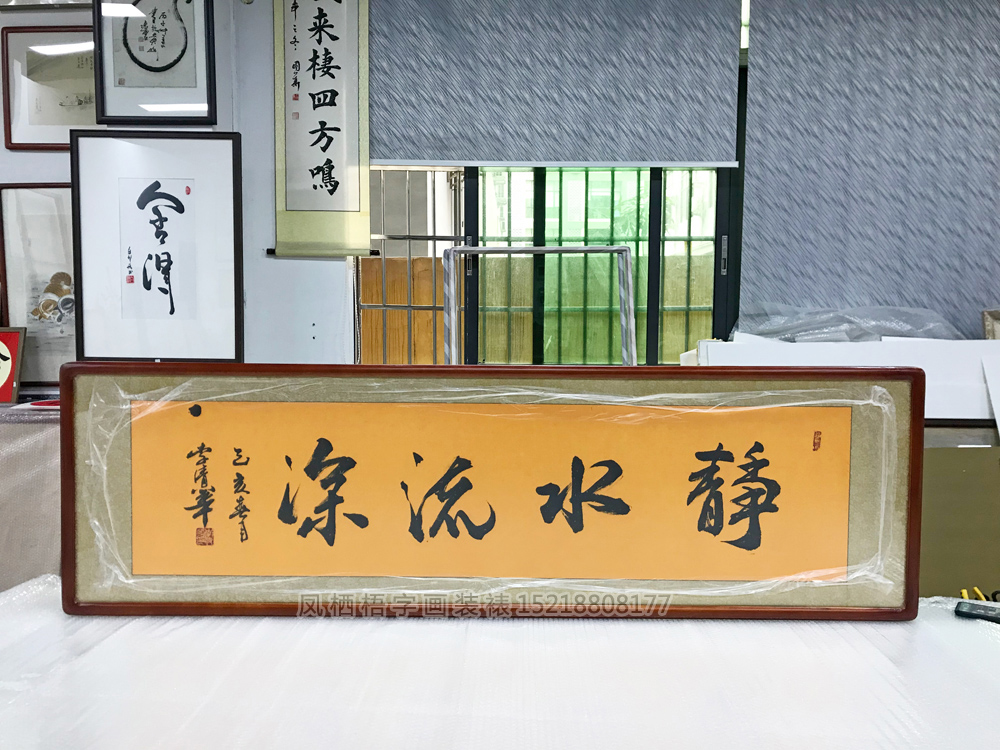 来棲四方鳴
舍得
静水流深
己亥春月
李清华
凤栖梧字画装裱 15218808177